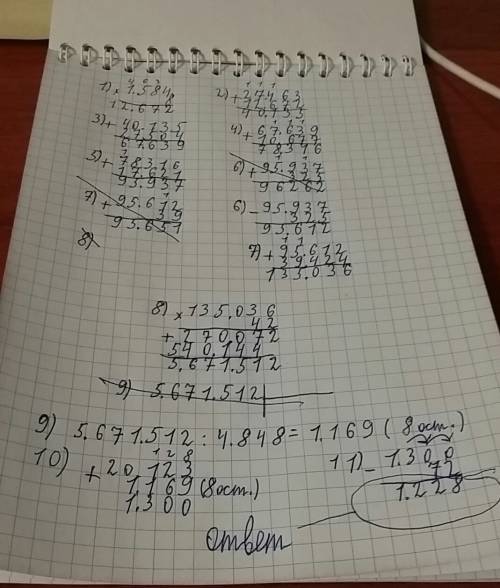 1) × 1.584
12.672
2) + 27.463
40.133
3) + 40.135
27.504
67.639
4) + 67.639
10.677
78.316
5) + 78.316
17.621
95.937
6) + 95.937
325
96262
7) + 95.612
39
95.651
6) - 95.937
325
95.612
8)
7) + 95.612
39.424
135.036
8) × 135.036
42
+ 270.072
540.144
5.671.512
9) 5.671.512
9) 5.671.512 : 4.848 = 1.169 (8 ост.)
10) + 20 123
1.169 (8 ост.)
1.300
11) - 1.300
72
1.228
ответ